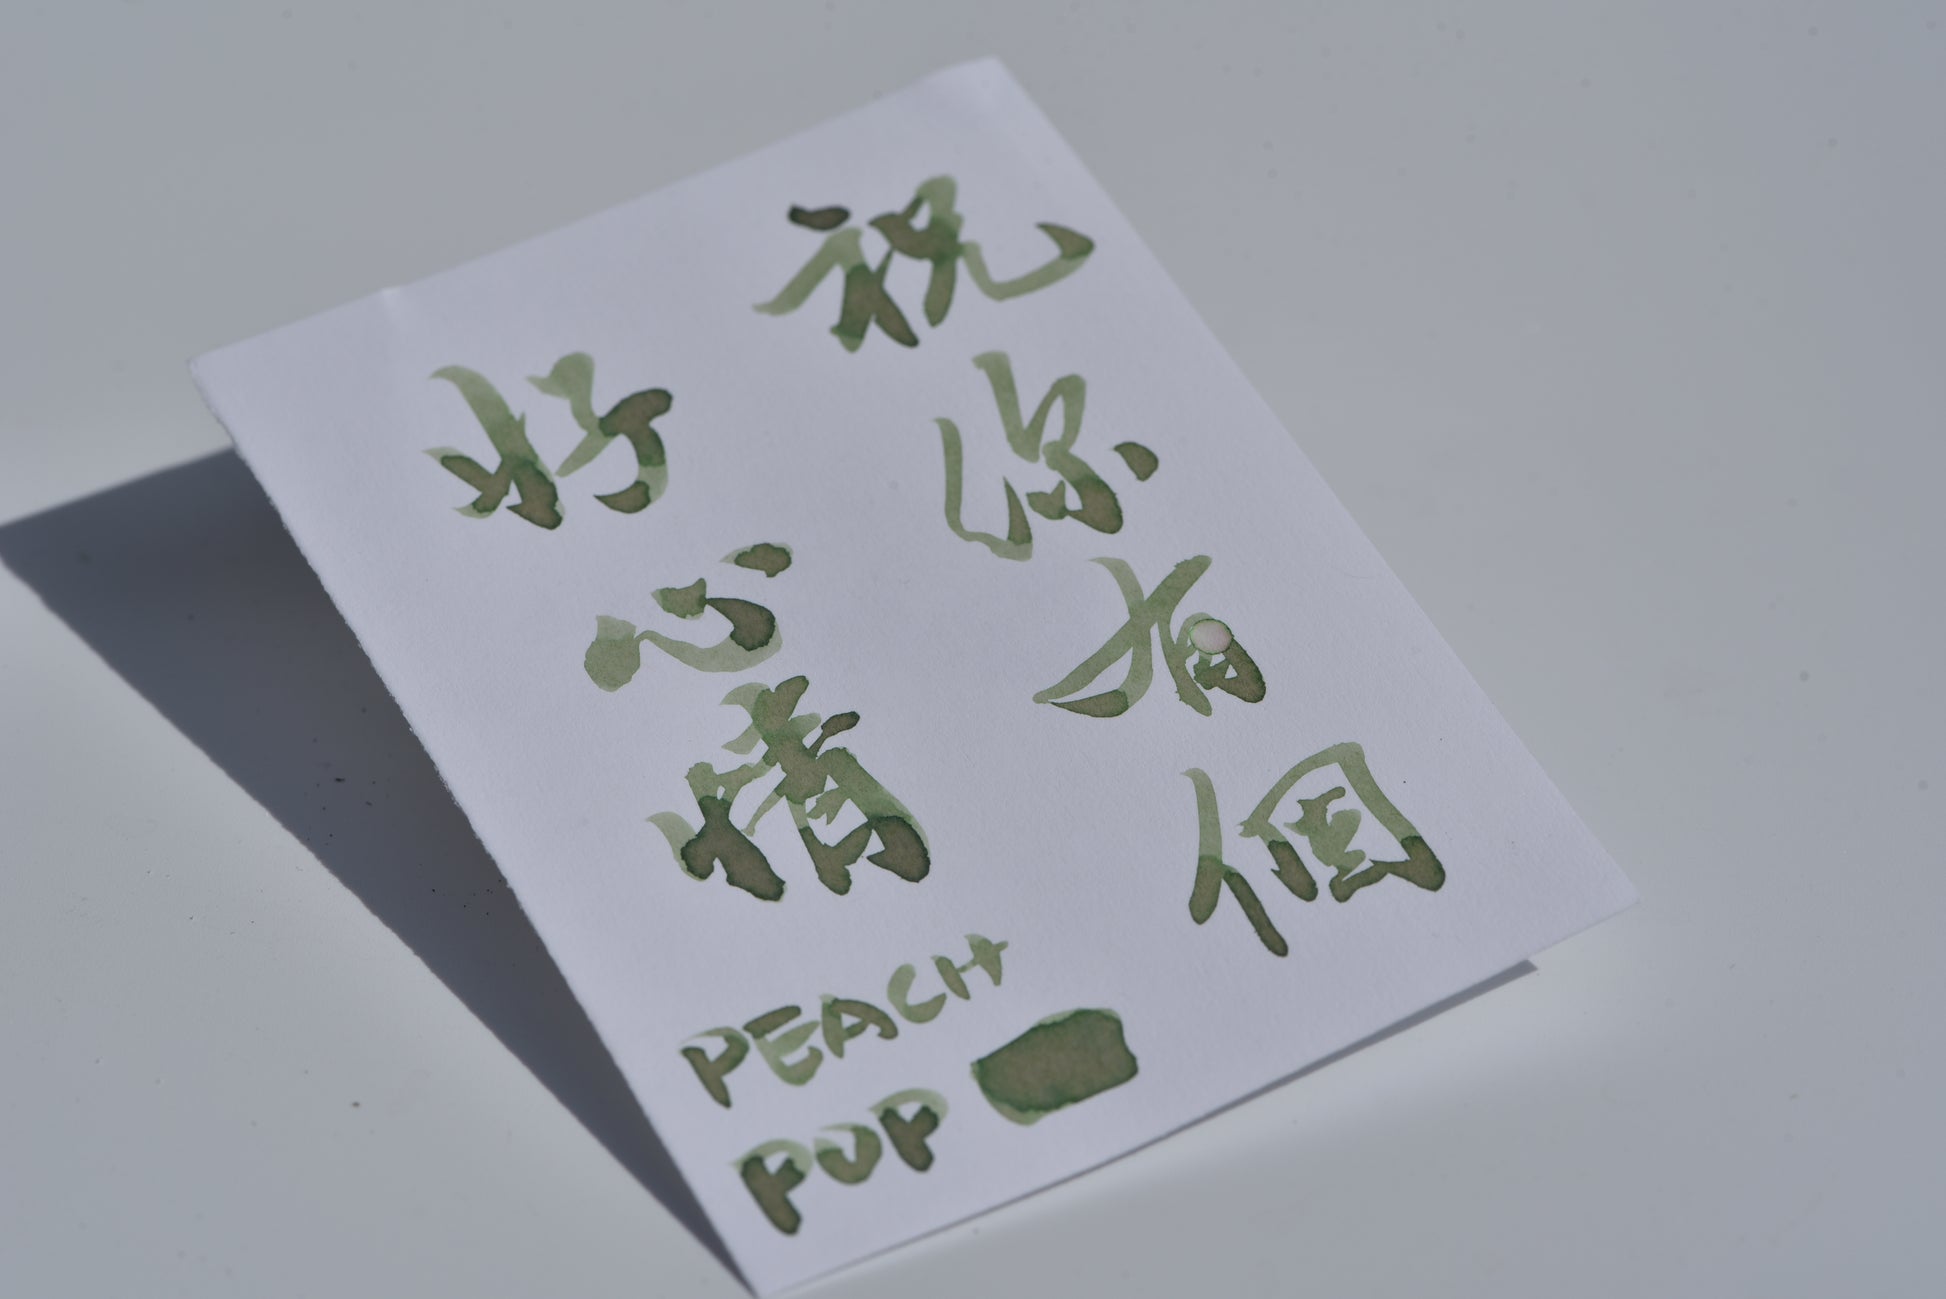 祝你有個
好心情
PEACH
POP